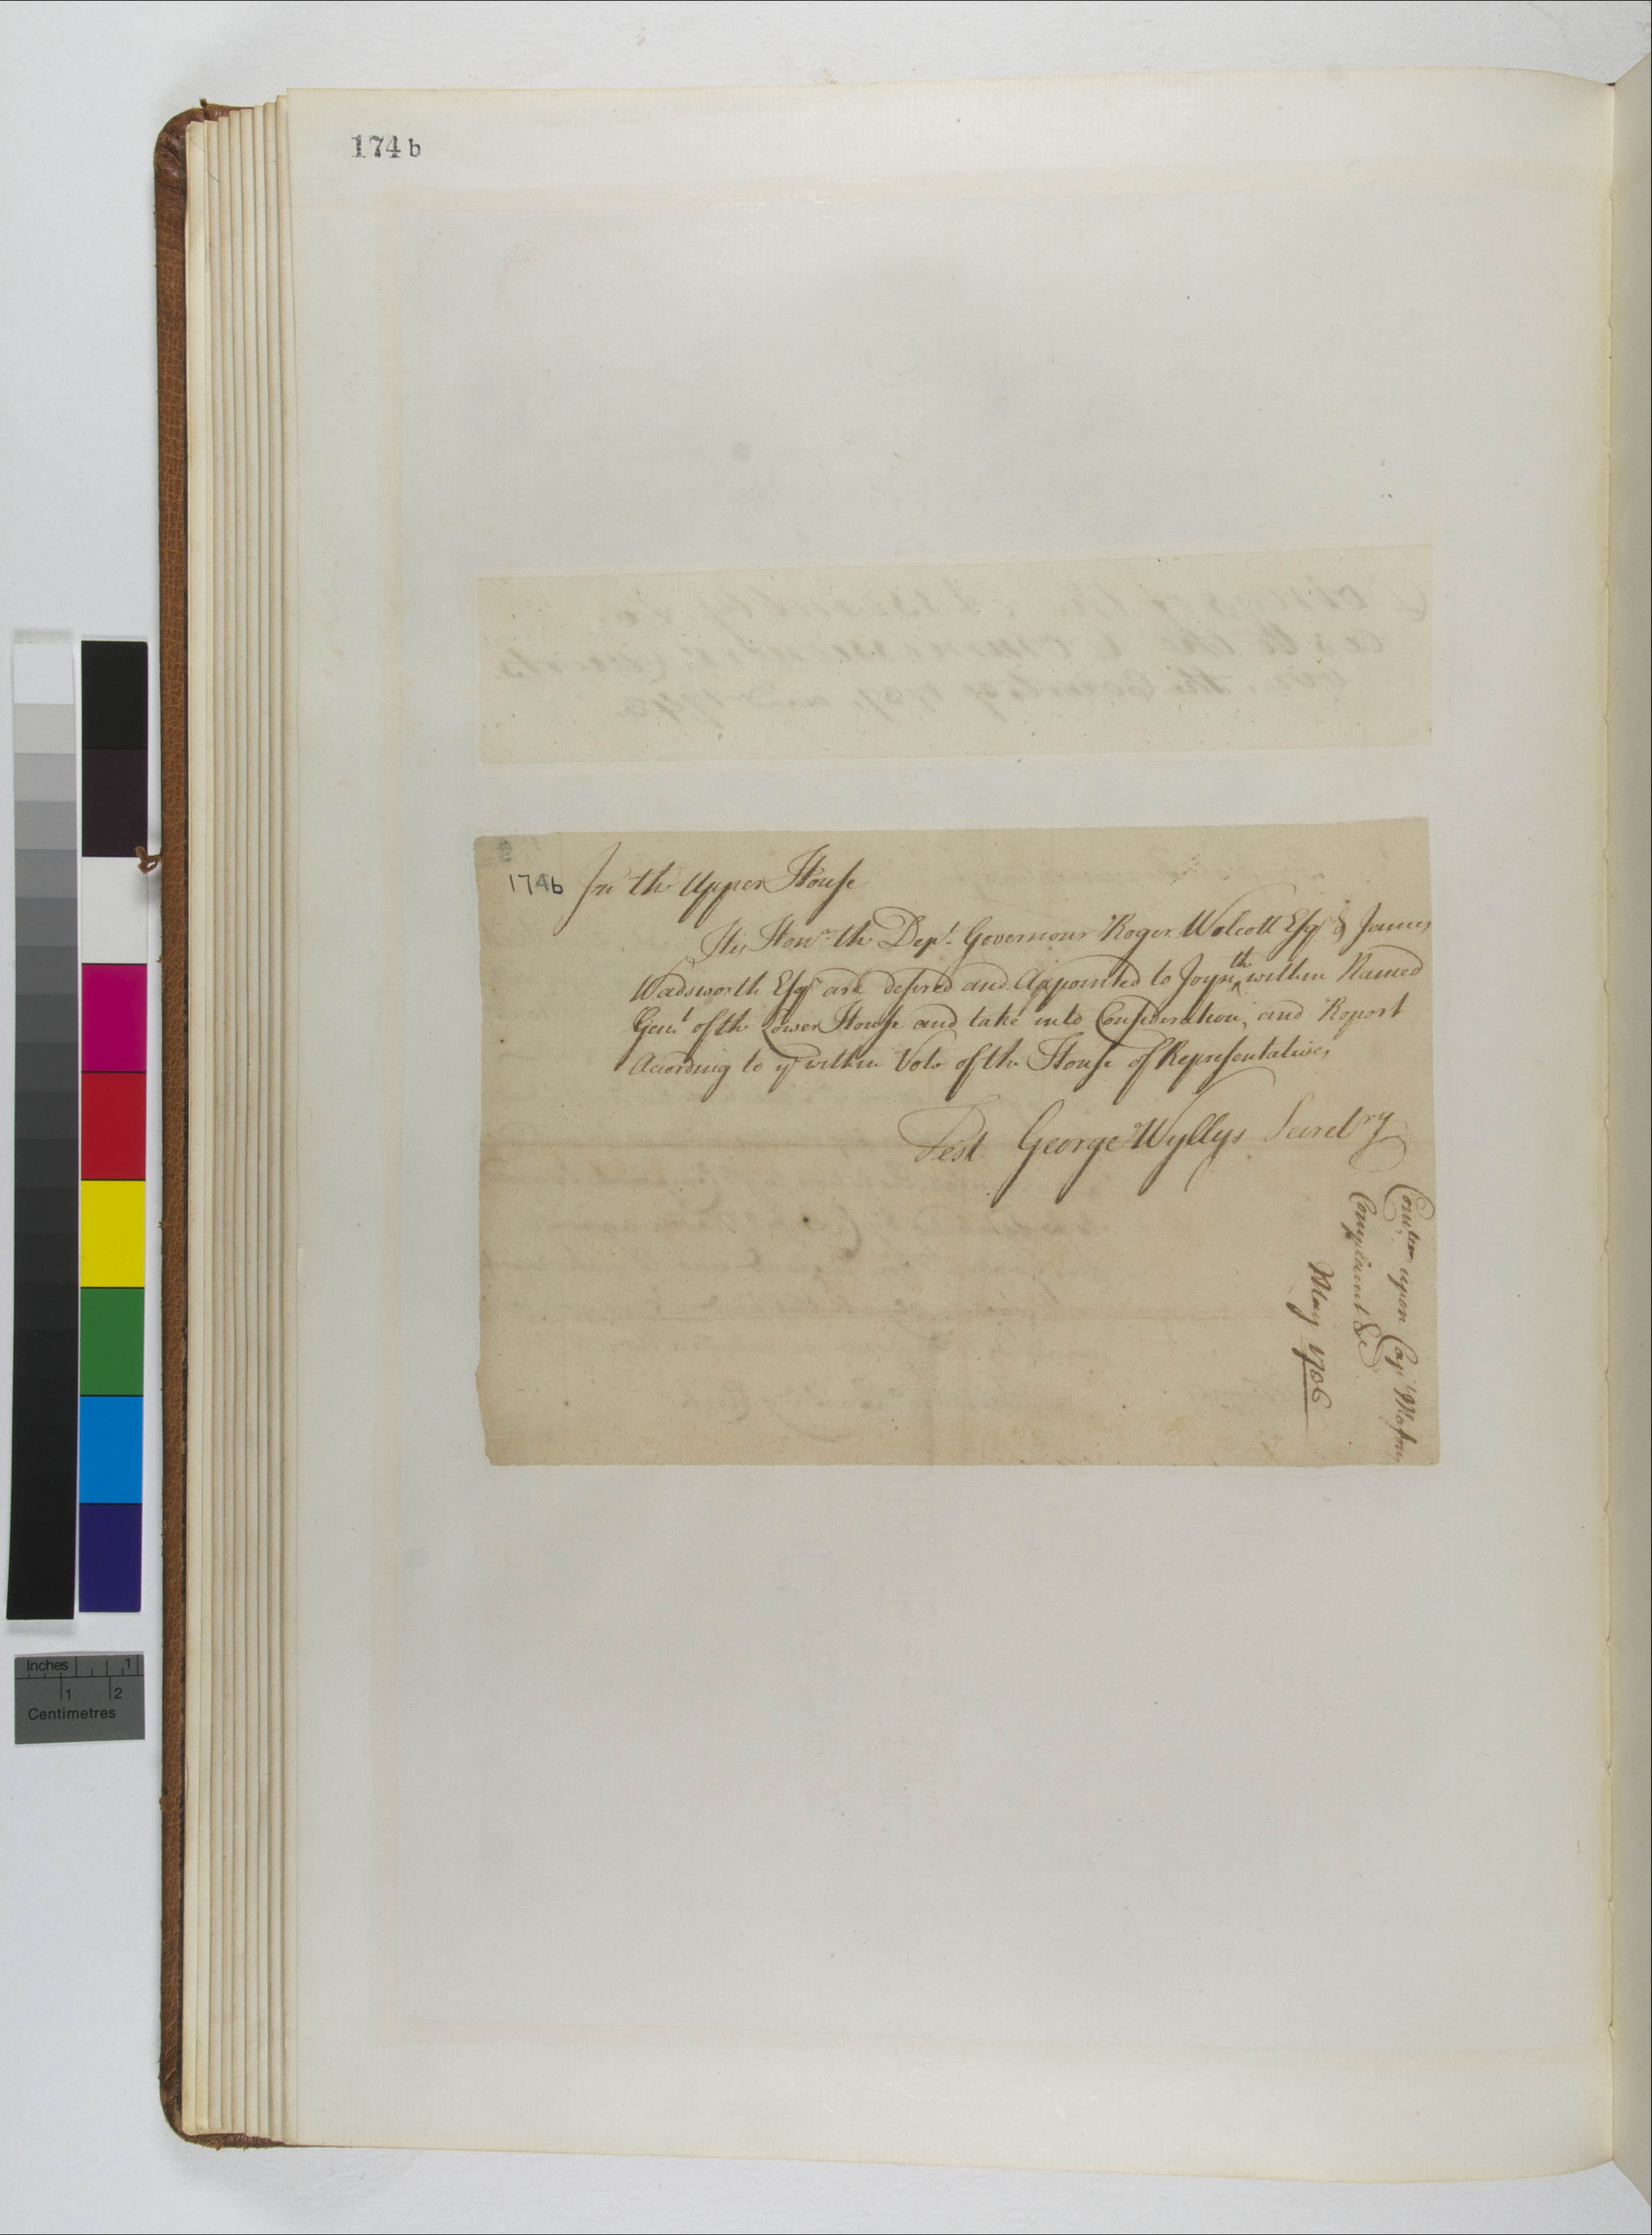 174 b
174b In the Upper House
His Honr. the Dept. Governour Roger Wolcott Esqr & James
Wadsworth Esqr are desired and Appointed to Joyn the within Named
Gent of the Lower House and take into Consideration, and Report
According to ye within Vote of the House of Representatives
Test George Wyllys Secretry
upon Capt Masons
Complaint &c
May 1706
Inches 1
1 2
Centimetres